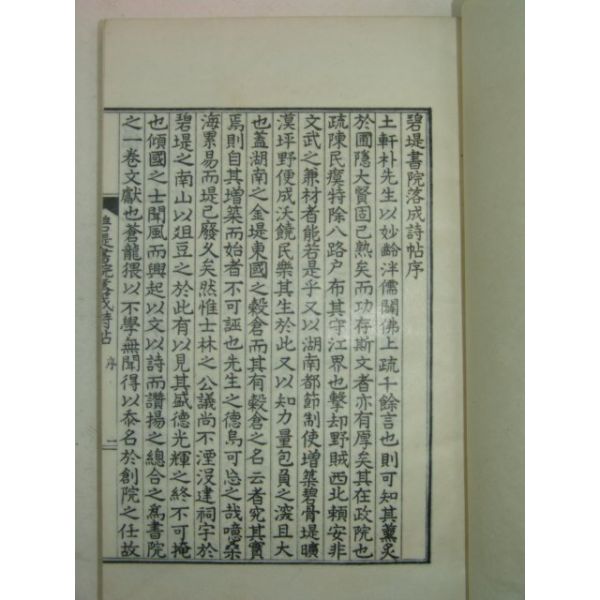 碧堤書院落成詩帖序
土軒朴先生以妙齡泮儒闢佛上疏千餘言也則可知其薰炙
於圃隱大賢固已熟矣而功存斯文者亦有厚矣其在政院也
疏陳民瘼特除八路户布其守江界也擊却野賊西北賴安非
文武之兼材者能若是乎又以湖南都節制使增築碧骨堤曠
漠坪野便成沃饒民樂其生於此又以知力量包負之深且大
也蓋湖南之金堤東國之穀倉而其有穀倉之名云者究其實
焉則自其增築而始者不可誣也先生之德烏可忘之哉噫桑
海累易而堤已廢久矣然惟士林之公議尚不湮沒建祠宇於
碧堤之南山以俎豆之於此有以見其盛德光輝之終不可掩
也傾國之士聞風而興起以文以詩而讚揚之總合之爲書院
之一卷文獻也蒼龍猥以不學無聞得以忝名於創院之任故
碧堤書院落成詩帖 序 二